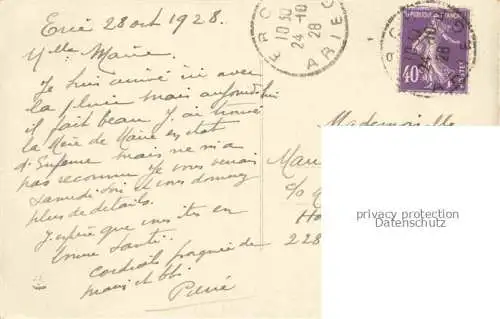 Ercé 28 oct 1928.
Mlle Marie.
Je suis arrivé ici avec
la pluie mais aujourd'hui
il fait beau. J'ai trouvé
la Mère de Marie en état
d'Enfance mais ne m'a
pas reconnu. Je vous verrai
samedi soir et vous donnerai
plus de détails.
J'espère que vous êtes en
bonne santé.
Cordiale poignée de
main et
Pierré
ERCÉ
10 30
24 -10
28
ARIEGE
REPUBLIQUE FRANÇAISE
40c
POSTES
Mademoiselle
Mar
c/o
Ho
228
privacy protection
Datenschutz